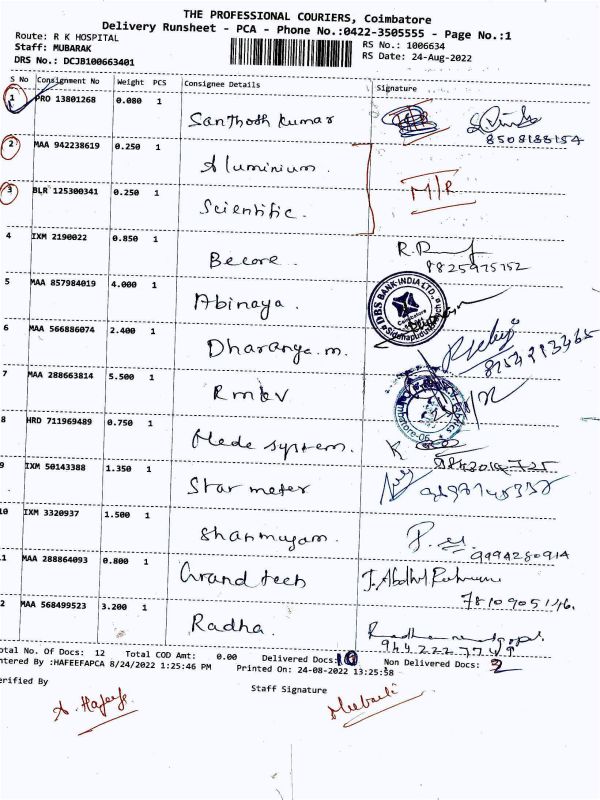 THE PROFESSIONAL COURIERS, Coimbatore
Delivery Runsheet - PCA - Phone No.:0422-3505555 - Page No.:1
Route: R K HOSPITAL
RS No.: 1006634
Staff: MUBARAK
RS Date: 24-Aug-2022
DRS No.: DCJB100663401
S No Consignment No Weight PCS Consignee Details Signature
1 PRO 13801268 0.080 1 Santhosh Kumar
8508188154
2 MAA 942238619 0.250 1 Aluminium.
3 BLR 125300341 0.250 1 Scientific. M/R
4 IXM 2190022 0.850 1 Becore
8825975752
5 MAA 857984019 4.000 1 Abinaya
DBS BANK INDIA LTD.
6 MAA 566886074 2.400 1 Dharanya.m.
7 MAA 288663814 5.500 1 Rmkv
8 HRD 711969489 0.750 1 Mede system.
9 IXM 50143388 1.350 1 Star meter
10 IXM 3320937 1.500 1 Shanmugam.
9994280914
1 MAA 288864093 0.800 1 Grand tech
7810905146.
2 MAA 568499523 3.200 1 Radha.
otal No. Of Docs: 12 Total COD Amt: 0.00 Delivered Docs: 10 Non Delivered Docs: 2
ntered By :HAFEEFAPCA 8/24/2022 1:25:46 PM Printed On: 24-08-2022 13:25:58
erified By Staff Signature